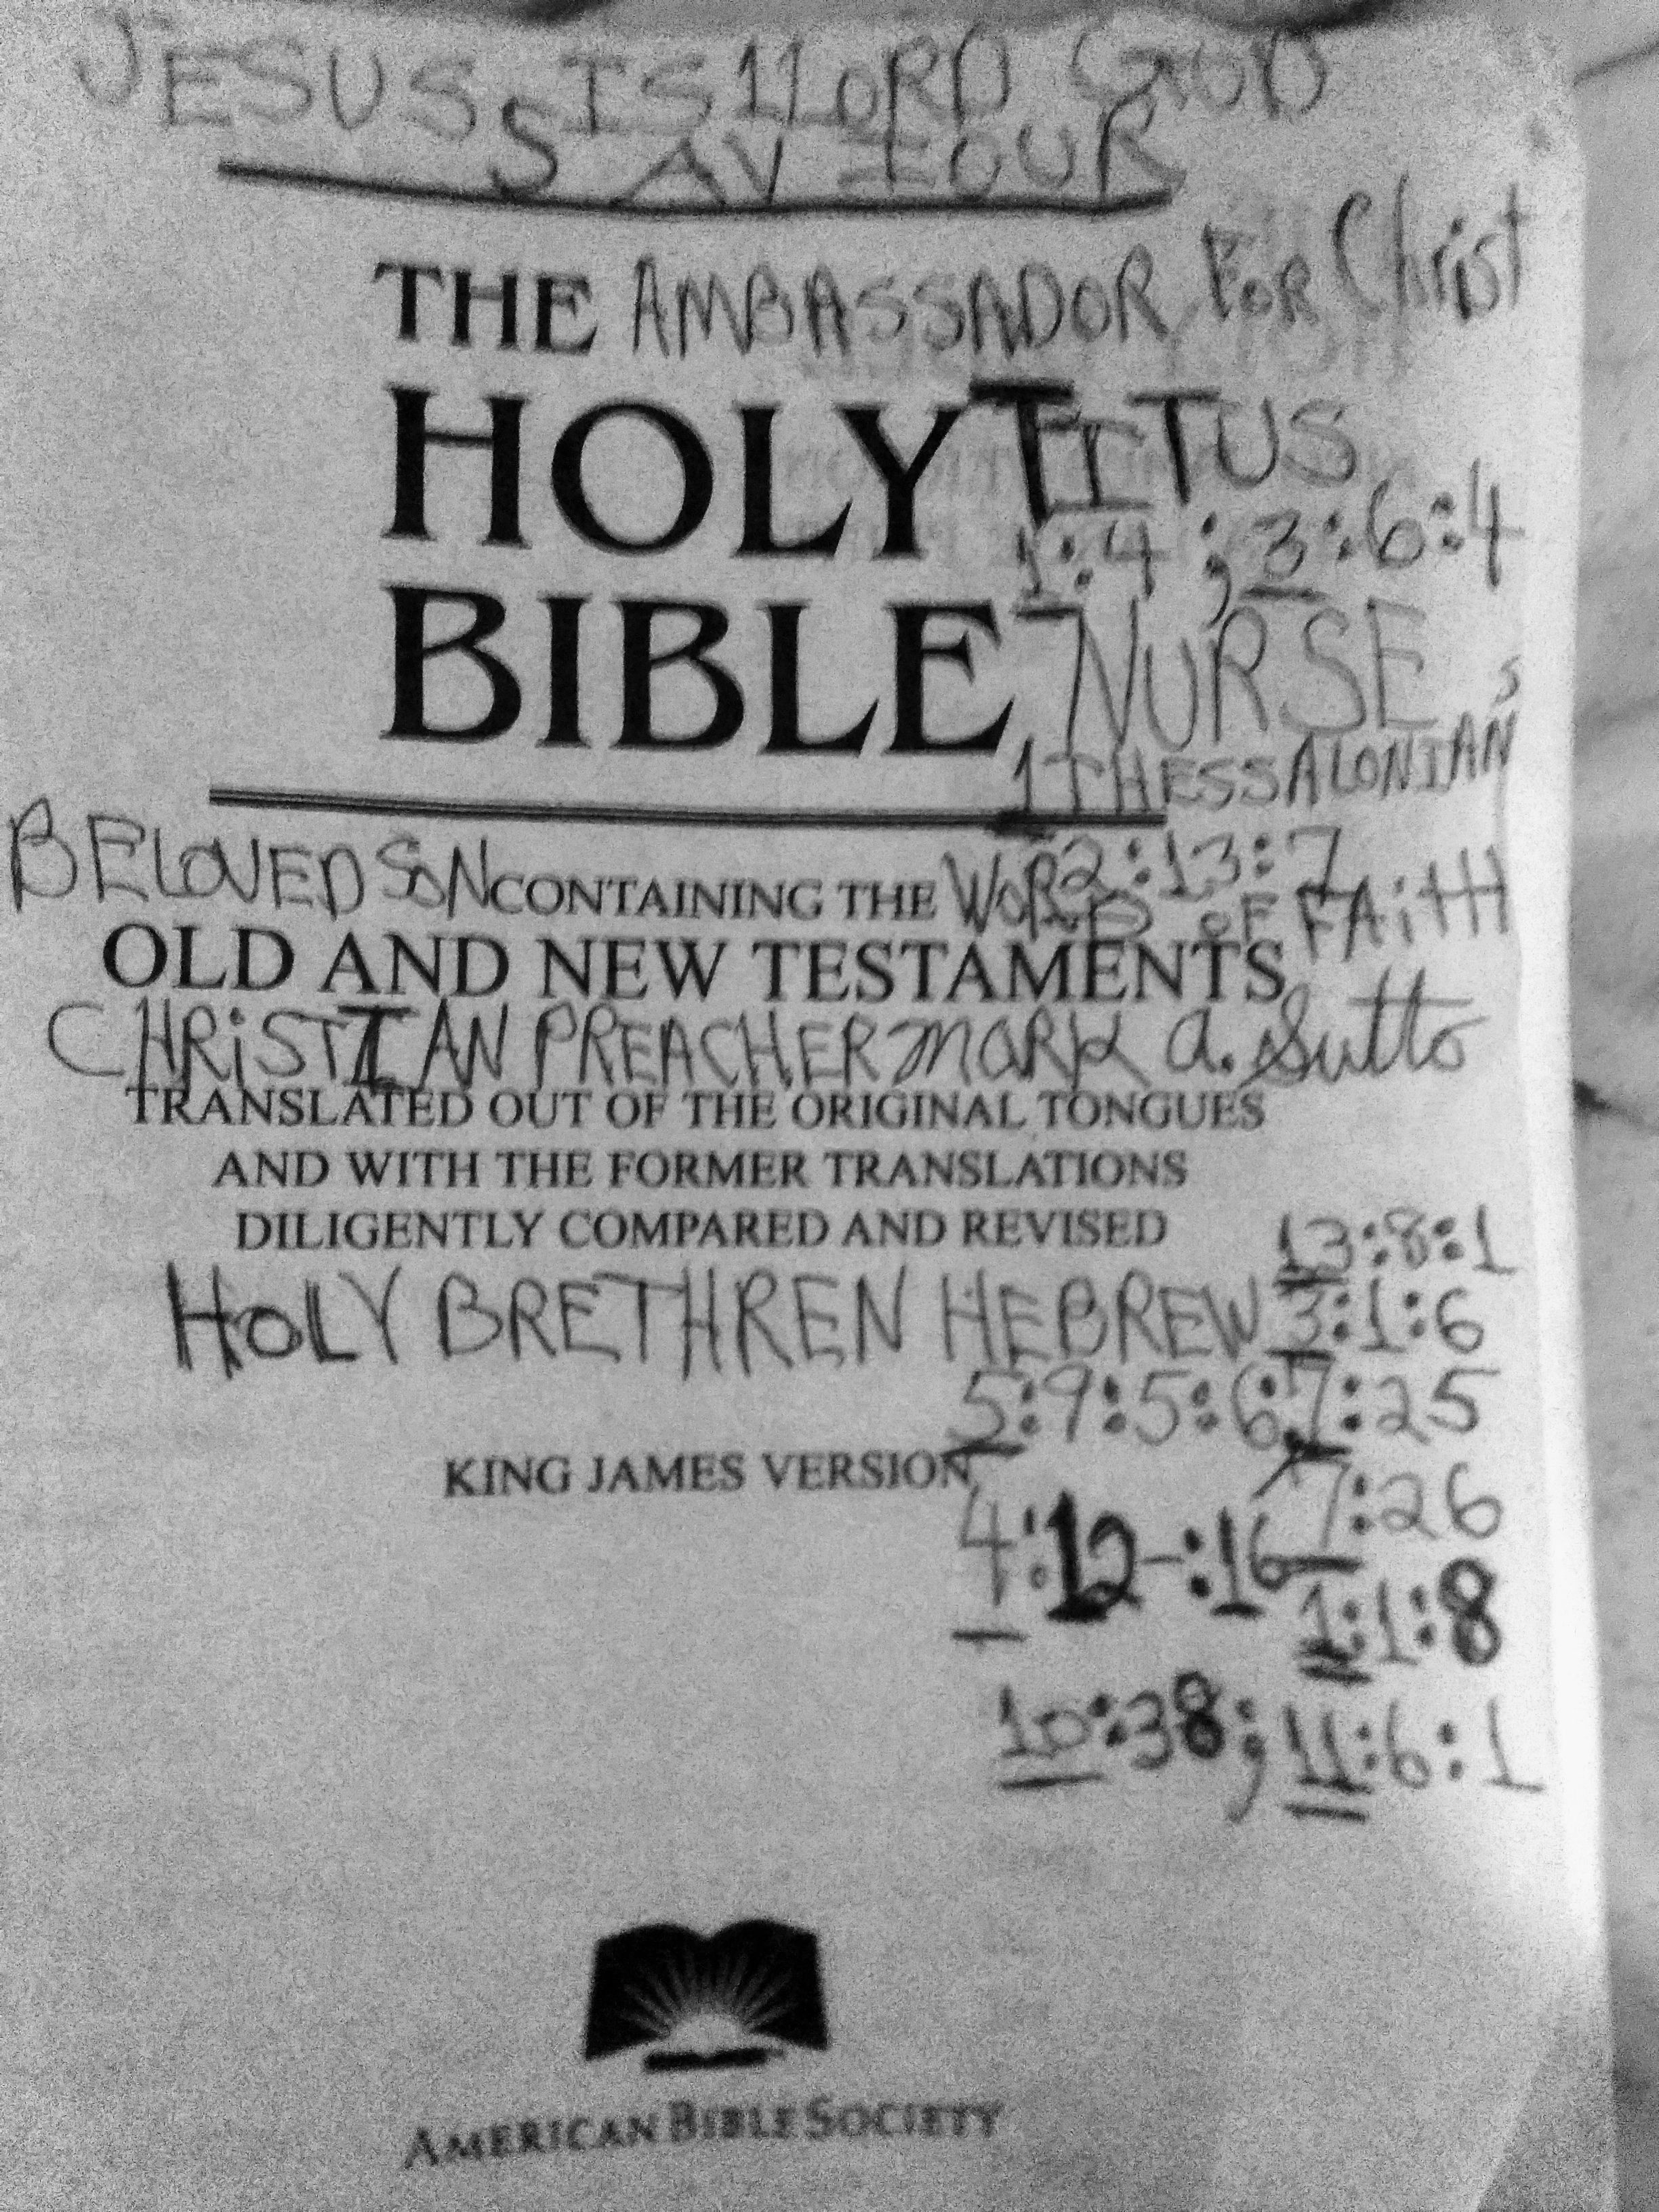 JESUS IS 1 LORD GOD
SAVIOUR
THE AMBASSADOR FOR Christ
HOLY TITUS
1:4 ; 3:6:4
BIBLE NURSE
1 THESSALONIANS
2:13:7
BELOVED SON CONTAINING THE WORD OF FAITH
OLD AND NEW TESTAMENTS
CHRiSTIAN PREACHER MARK a. Sutto
TRANSLATED OUT OF THE ORIGINAL TONGUES
AND WITH THE FORMER TRANSLATIONS
DILIGENTLY COMPARED AND REVISED
13:8:1
HOLY BRETHREN HEBREW 3:1:6
5:9:5:6; 7:25
KING JAMES VERSION
7:26
4:12-:16
1:1:8
10:38; 11:6:1
AMERICAN BIBLE SOCIETY